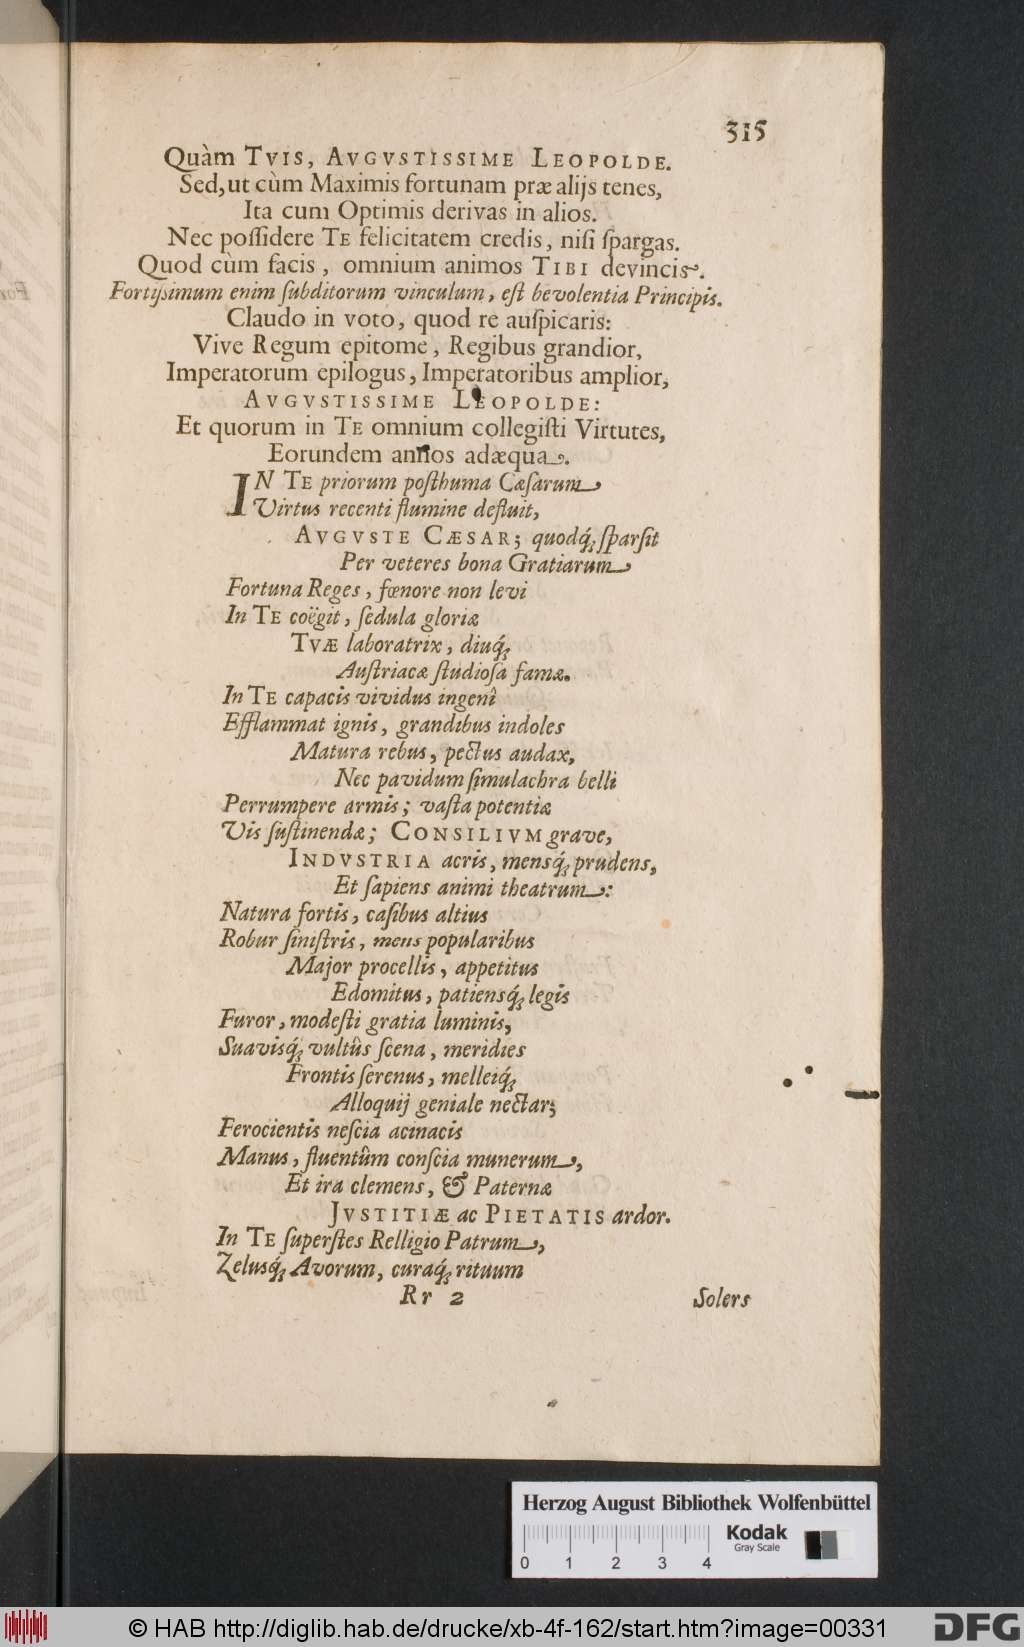 315
Quàm TVIS, AVGVSTISSIME LEOPOLDE.
Sed, ut cùm Maximis fortunam præ alijs tenes,
Ita cum Optimis derivas in alios.
Nec poſſidere TE felicitatem credis, niſi ſpargas.
Quod cùm facis, omnium animos TIBI devincis.
Fortiſsimum enim ſubditorum vinculum, eſt bevolentia Principis.
Claudo in voto, quod re auſpicaris:
Vive Regum epitome, Regibus grandior,
Imperatorum epilogus, Imperatoribus amplior,
AVGVSTISSIME LEOPOLDE:
Et quorum in TE omnium collegiſti Virtutes,
Eorundem annos adæqua.
IN TE priorum poſthuma Cæſarum
Virtus recenti flumine defluit,
AVGVSTE CÆSAR; quodq́; ſparſit
Per veteres bona Gratiarum
Fortuna Reges, fœnore non levi
In TE coëgit, ſedula gloriæ
TVÆ laboratrix, diuq́;
Auſtriacæ ſtudioſa famæ.
In TE capacis vividus ingenî
Efflammat ignis, grandibus indoles
Matura rebus, pectus audax,
Nec pavidum ſimulachra belli
Perrumpere armis; vaſta potentiæ
Vis ſuſtinendæ; CONSILIVM grave,
INDVSTRIA acris, mensq́; prudens,
Et ſapiens animi theatrum:
Natura fortis, caſibus altius
Robur ſiniſtris, mens popularibus
Major procellis, appetitus
Edomitus, patiensq́; legis
Furor, modeſti gratia luminis,
Suavisq́; vultûs ſcena, meridies
Frontis ſerenus, melleiq́;
Alloquij geniale nectar;
Ferocientis neſcia acinacis
Manus, fluentûm conſcia munerum,
Et ira clemens, & Paternæ
JVSTITIÆ ac PIETATIS ardor.
In TE ſuperſtes Relligio Patrum,
Zelusq́; Avorum, curaq́; rituum
Rr 2 Solers
Herzog August Bibliothek Wolfenbüttel
Kodak
Gray Scale
0 1 2 3 4
© HAB http://diglib.hab.de/drucke/xb-4f-162/start.htm?image=00331
DFG